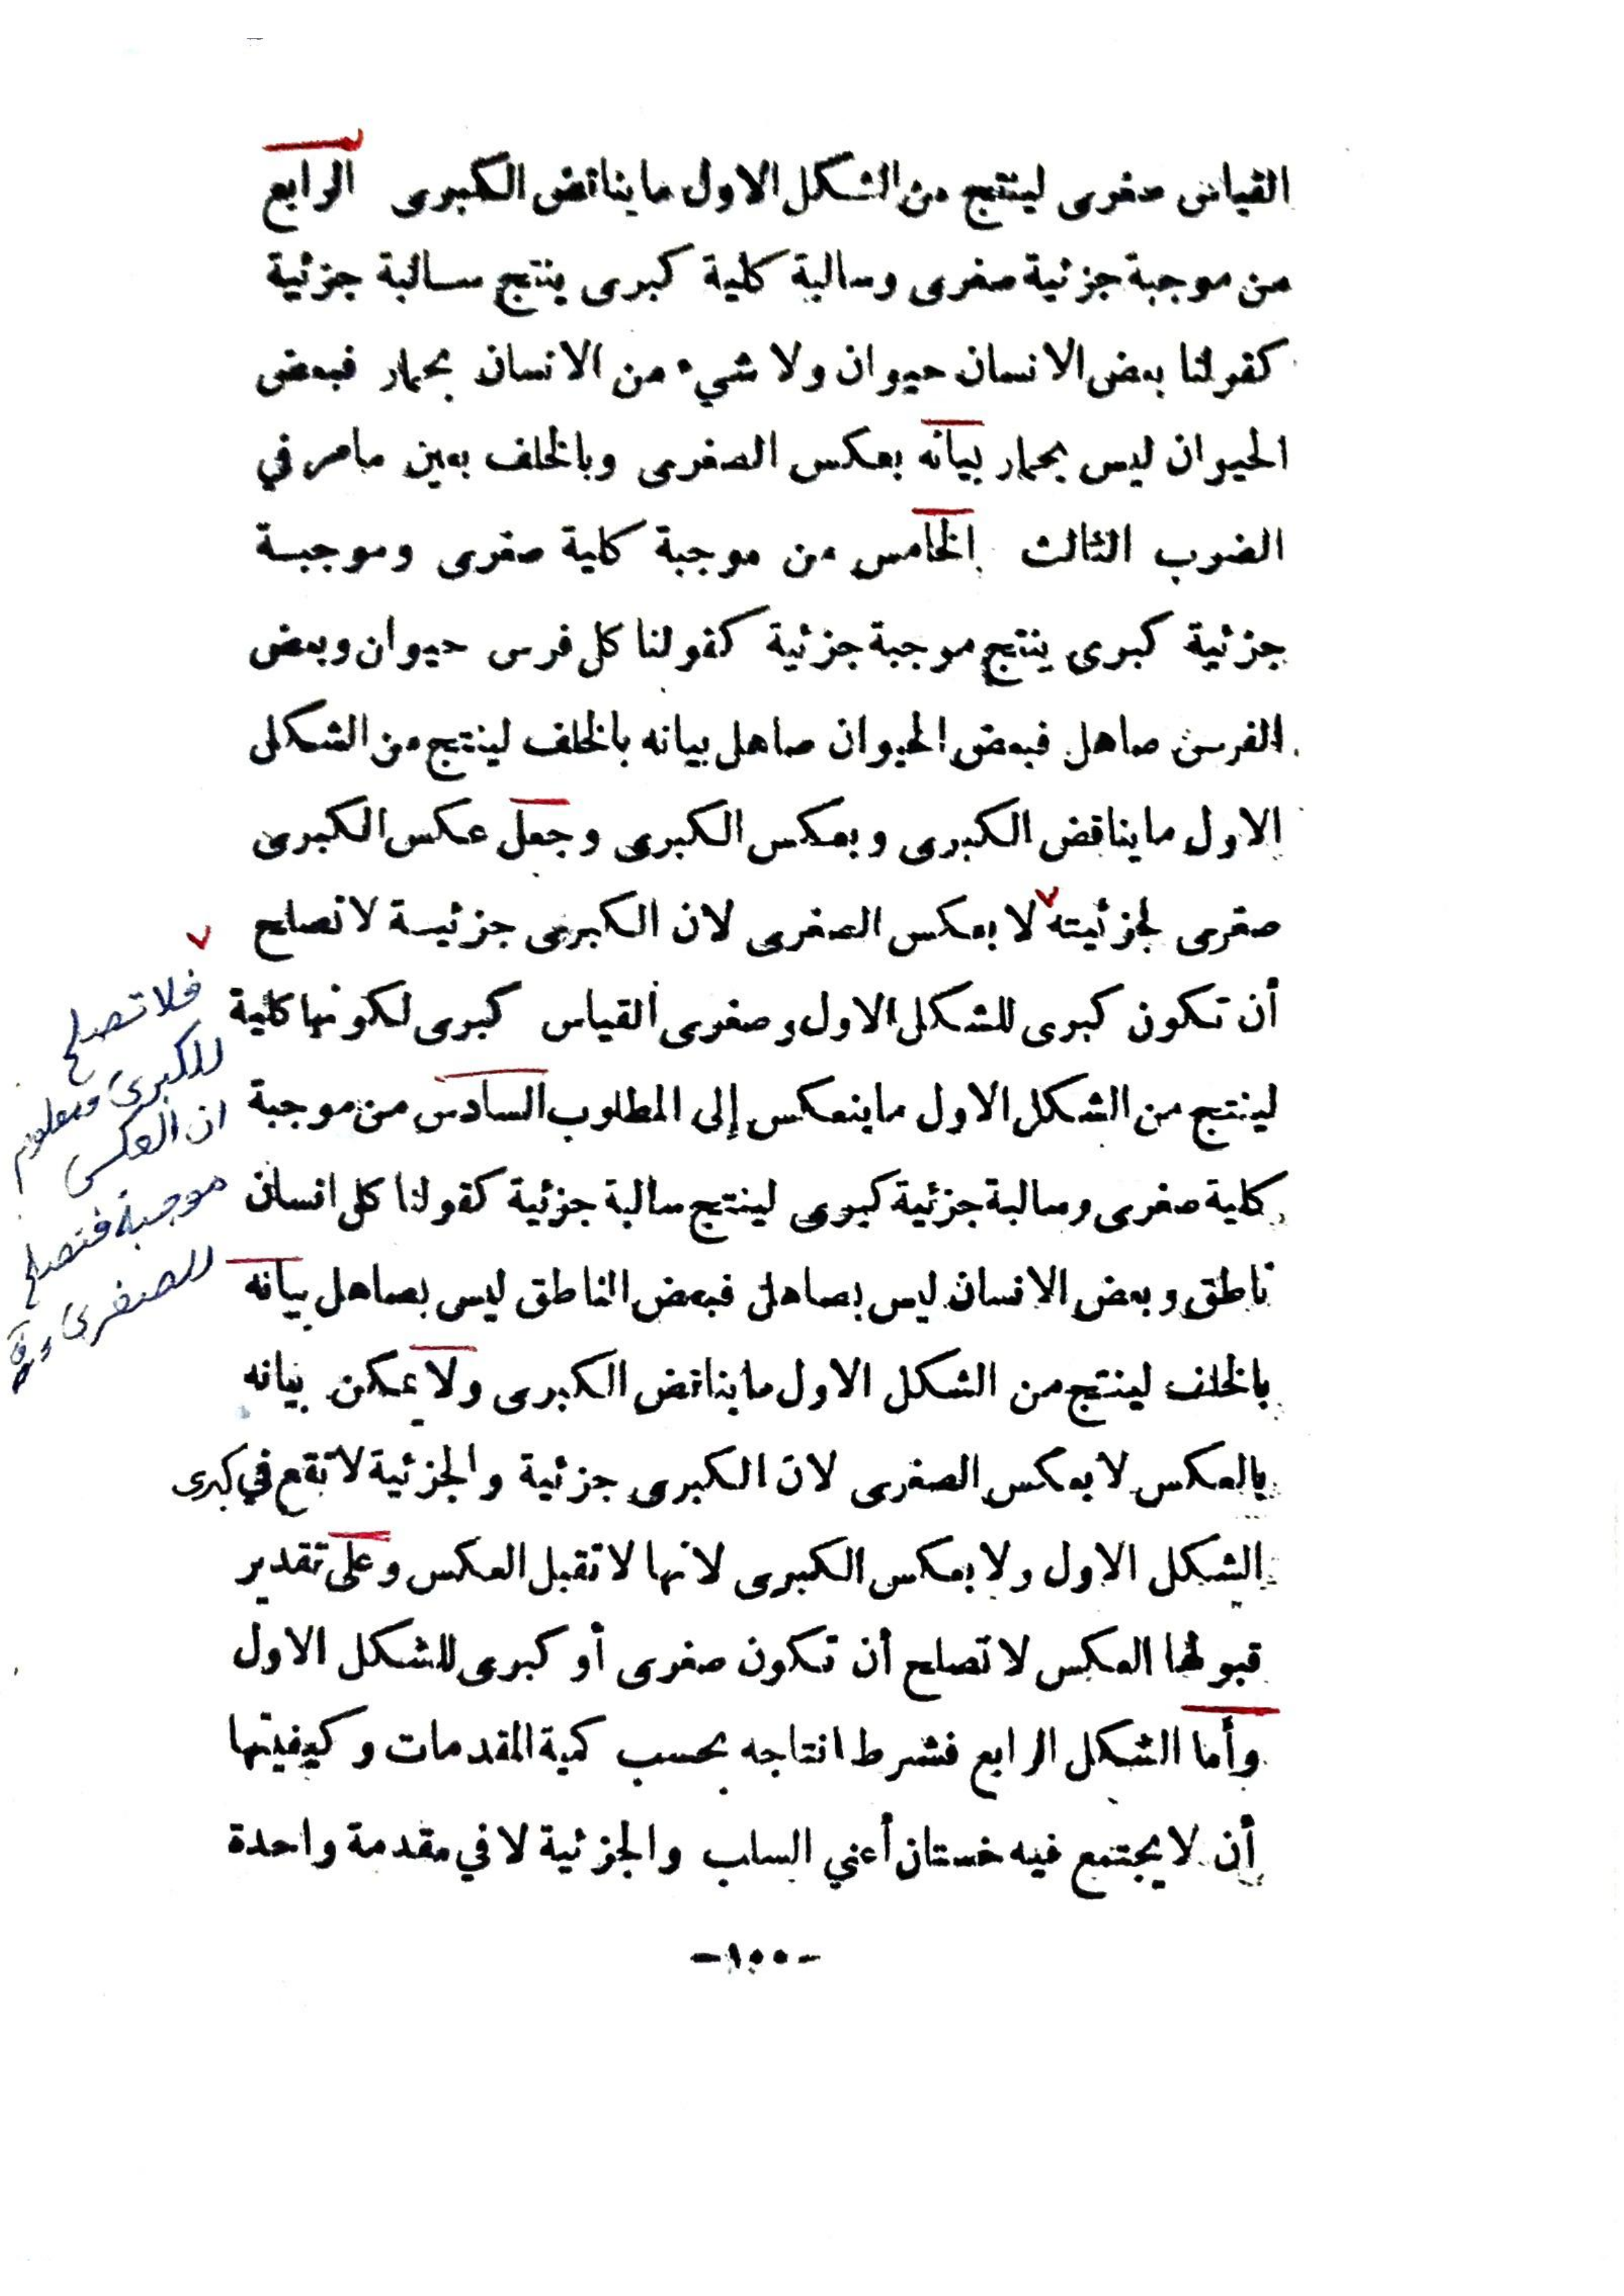 القياس صغرى لينتج من الشكل الاول ما يناقض الكبرى الرابع
من موجبة جزئية صغرى وسالبة كلية كبرى ينتج سالبة جزئية
كقولنا بعض الانسان حيوان ولا شيء من الانسان بحمار فبعض
الحيوان ليس بحمار بيانه بعكس الصغرى وبالخلف بعين ما مر في
الضرب الثالث الخامس من موجبة كلية صغرى وموجبة
جزئية كبرى ينتج موجبة جزئية كقولنا كل فرس حيوان وبعض
الفرس صاهل فبعض الحيوان صاهل بيانه بالخلف لينتج من الشكل
الاول ما يناقض الكبرى وبعكس الكبرى وجعل عكس الكبرى
صغرى لجزئيته لا بعكس الصغرى لان الكبرى جزئية لا تصلح
أن تكون كبرى للشكل الاول وصغرى القياس كبرى لكونها كلية
لينتج من الشكل الاول ما ينعكس إلى المطلوب السادس من موجبة
كلية صغرى وسالبة جزئية كبرى لينتج سالبة جزئية كقولنا كل انسان
ناطق وبعض الانسان ليس بصاهل فبعض الناطق ليس بصاهل بيانه
بالخلف لينتج من الشكل الاول ما يناقض الكبرى ولا يمكن بيانه
بالعكس لا بعكس الصغرى لان الكبرى جزئية والجزئية لا تقع في كبرى
الشكل الاول ولا بعكس الكبرى لانها لا تقبل العكس وعلى تقدير
قبولها العكس لا تصلح أن تكون صغرى أو كبرى للشكل الاول
وأما الشكل الرابع فشرط انتاجه بحسب كمية المقدمات وكيفيتها
أن لا يجتمع فيه خستان أعني السلب والجزئية لا في مقدمة واحدة
-١٠٠-
فلا تصلح
للكبرى ومعلوم
ان العكس
موجبة فتصلح
للصغرى